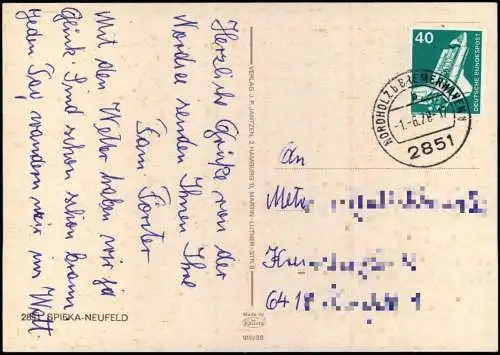 Herzliche Grüße von der
Nordsee senden Ihnen Ihre
Fam. Forster
Mit dem Wetter haben wir ja
Glück. Sind schon schön braun
jeden Tag wandern wir im Watt.
2851 SPIEKA-NEUFELD
VERLAG J. P. JANTZEN, 2 HAMBURG 11, MARTIN-LUTHER-STR. 9
Made by
40
DEUTSCHE BUNDESPOST
NORDHOLZ b BREMERHAVEN
-1.-6.78-17
2851
An
Metz
641